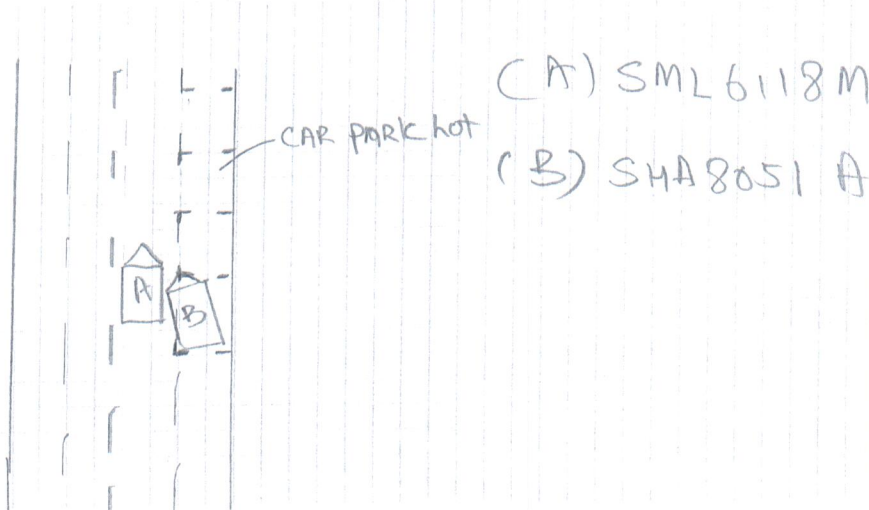 (A) SML6118M
CAR PARK hot
(B) SHA8051 A
A
B